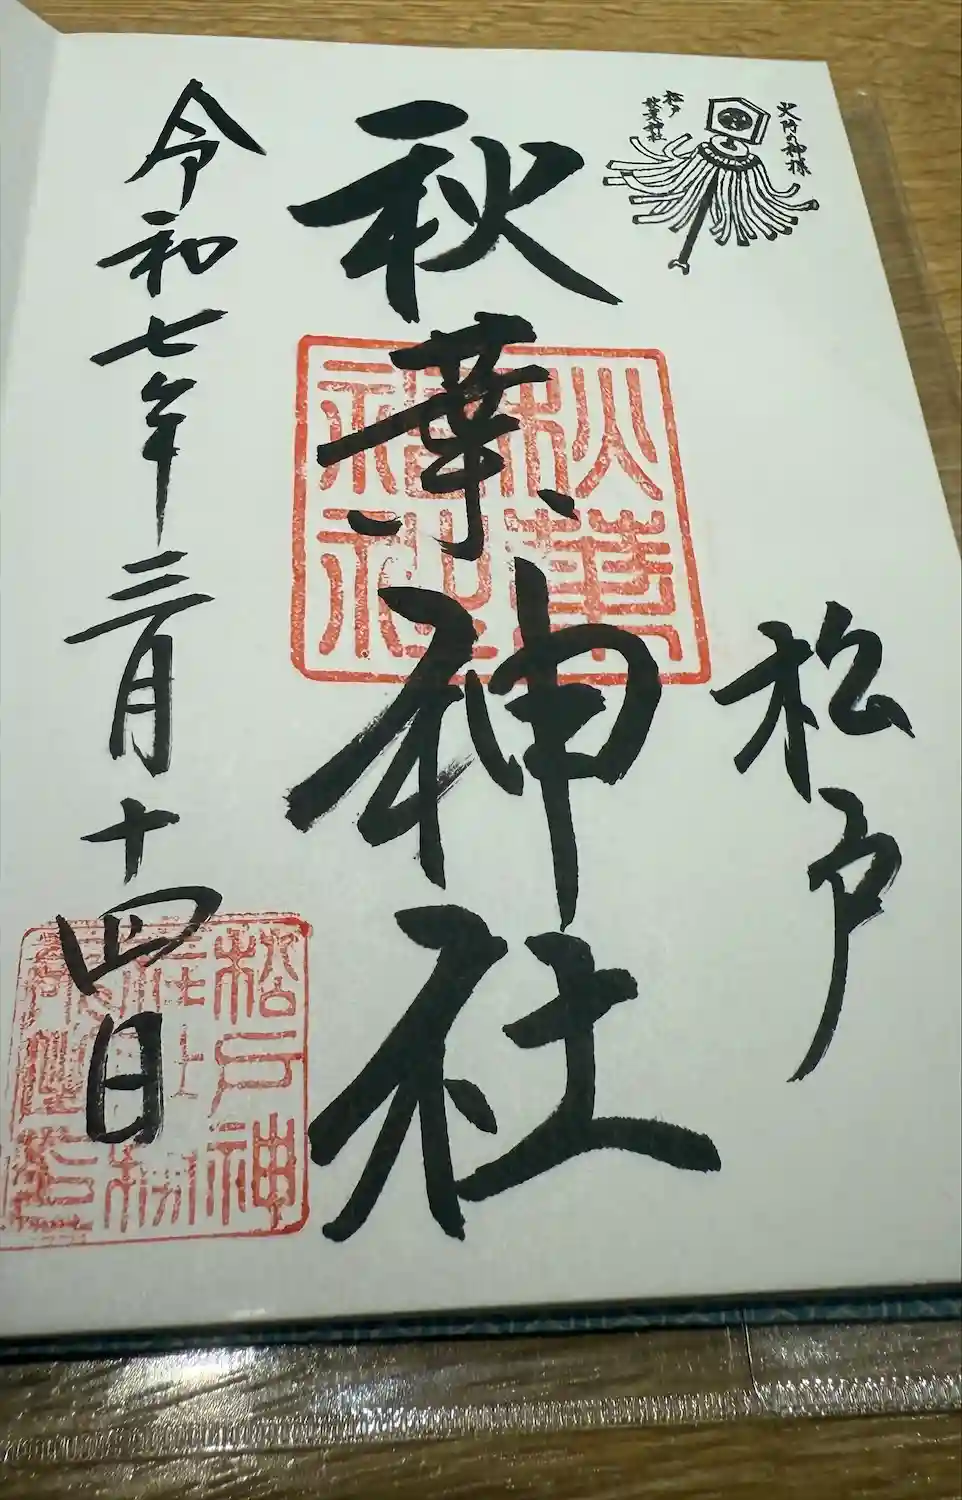 火防の神様
松戸
秋葉神社
松戸
秋葉神社
秋葉神社
令和七年三月十四日
松戸神